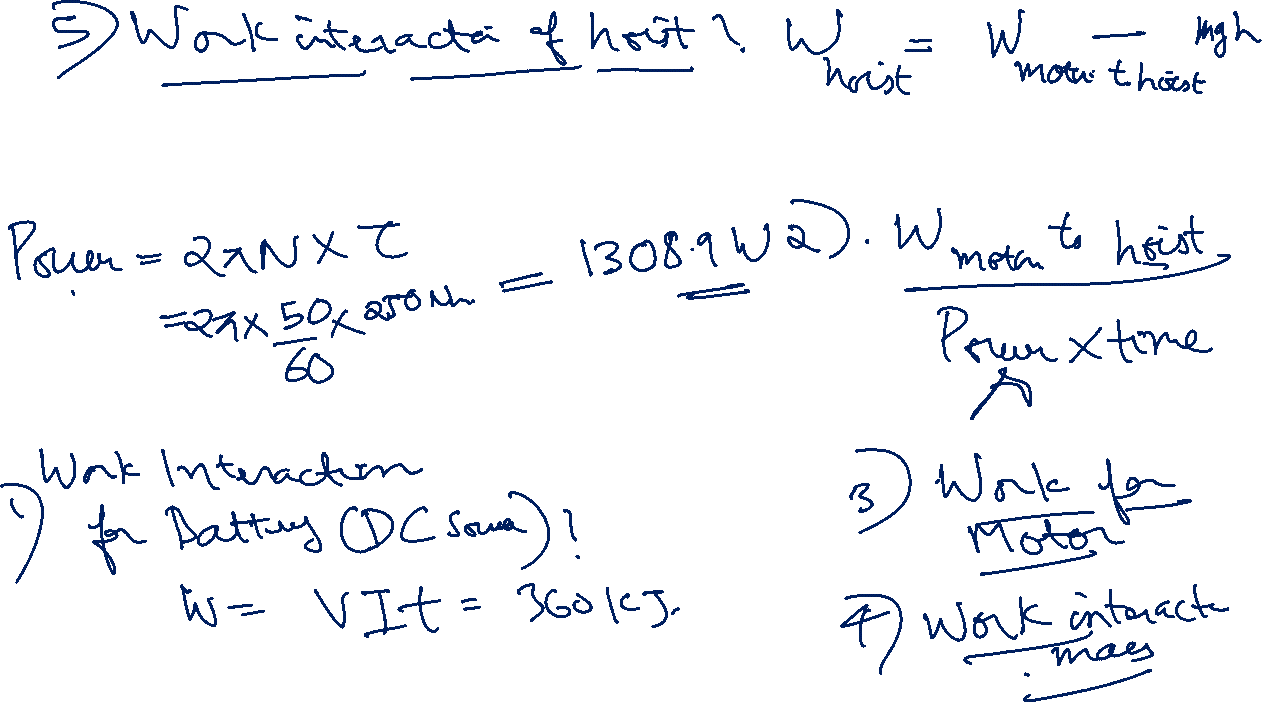 5) Work interacti of hoist? W hoist = W motor to hoist - mgh
Power = 2πN × τ
= 2π × 50/60 × 250 Nm = 1308.9 W
2). W motor to hoist
Power × time
1) Work Interaction
for Battery (DC Source)?
W = VIt = 360 kJ.
3) Work for
Motor
4) Work interacte
mass